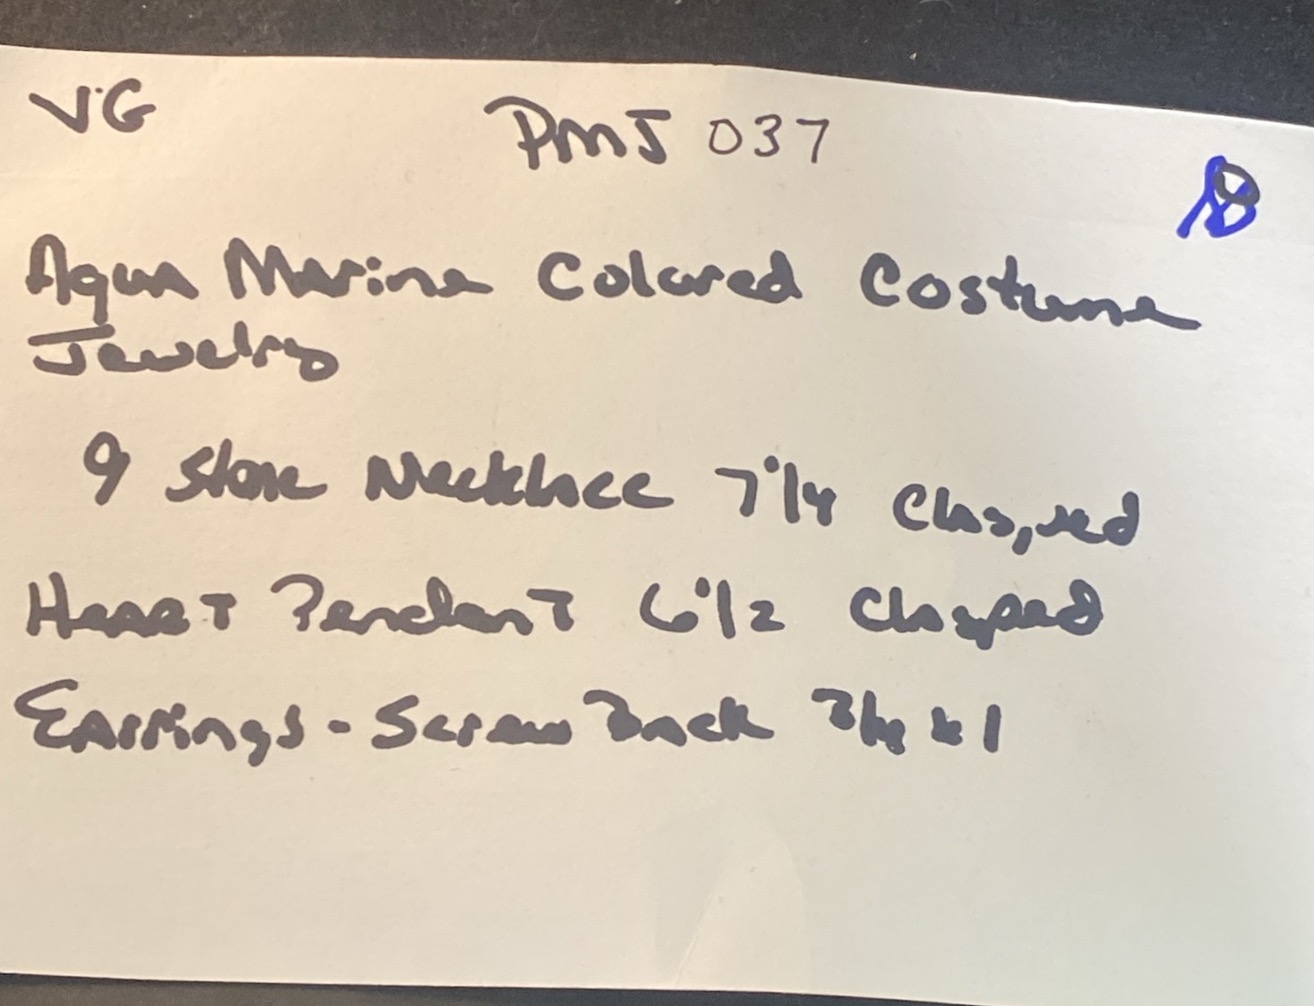 VG
PMJ 037
Aqua Marine Colored Costume
Jewelry
9 Stone Necklace 7 1/4 Clasped
Heart Pendant 6 1/2 Clasped
Earrings - Screw Back 3/4 x 1